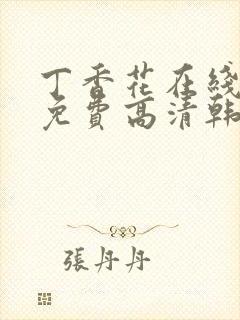 丁香花在綫
免費高清韓
張丹丹